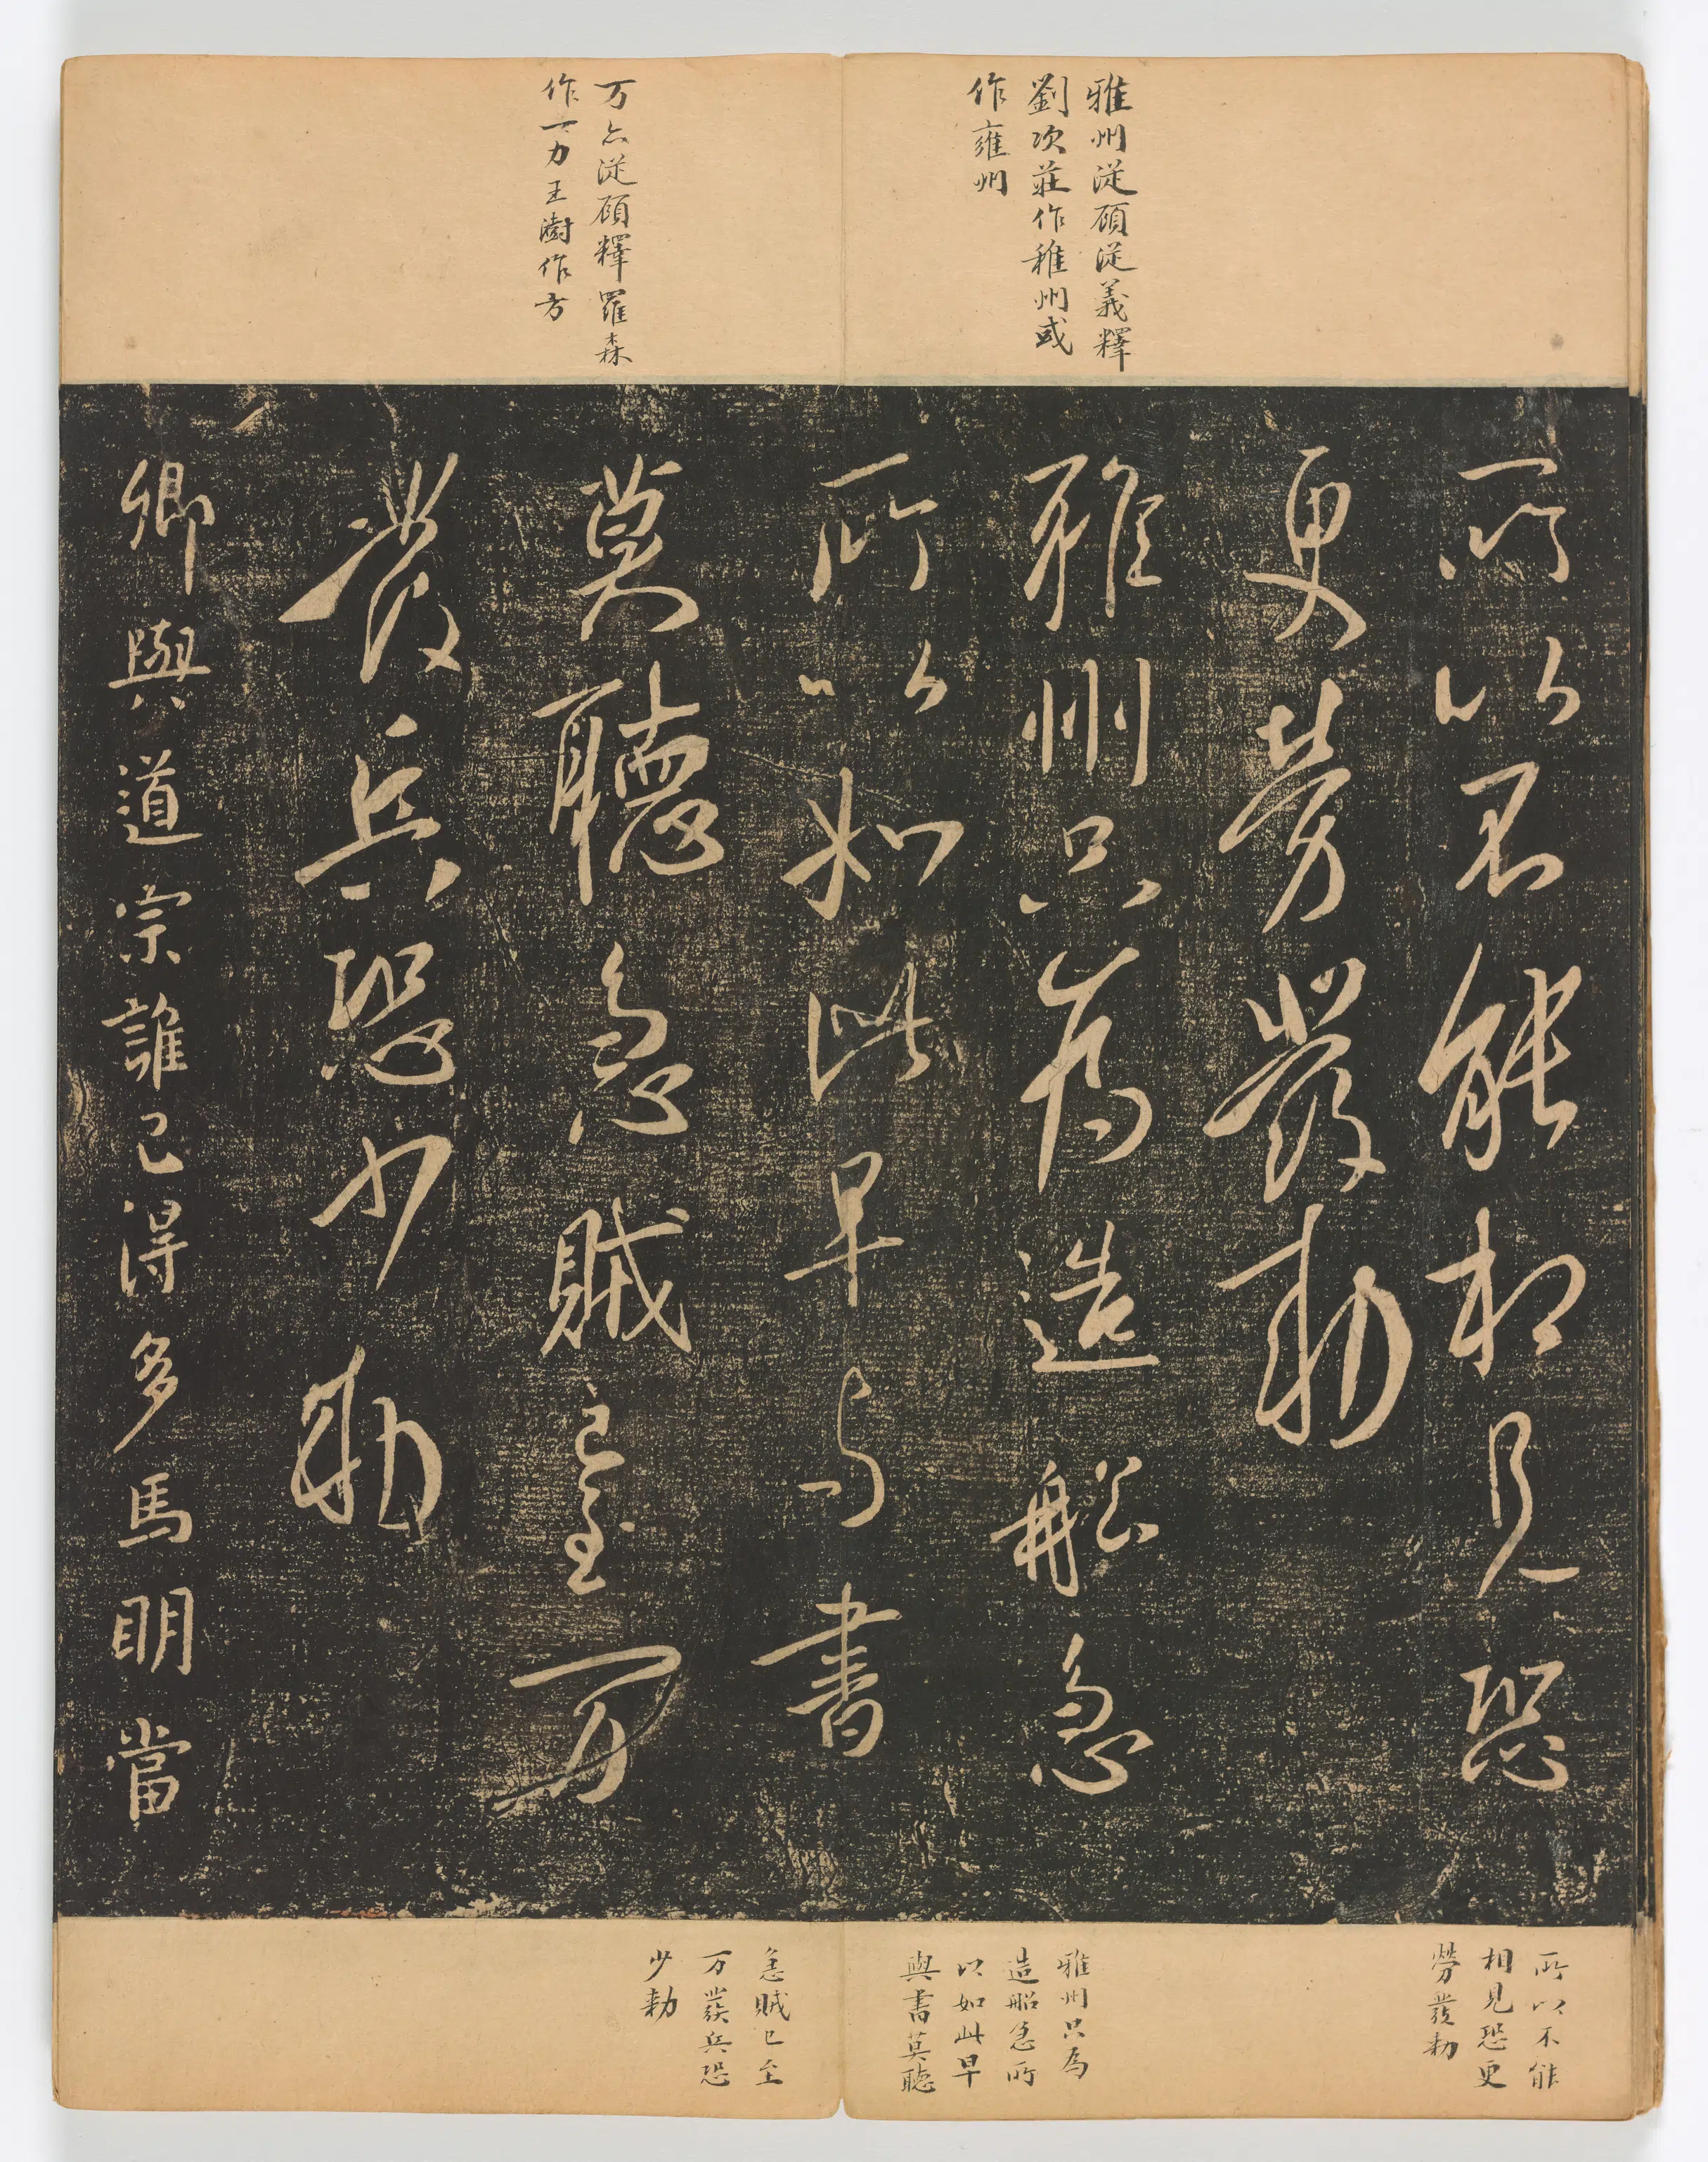 雅州從顧從義釋
劉次莊作稚州或
作雍州
万亦從顧釋羅森
作一力王澍作方
所以不能相見恐
更勞發勅
雅州只為造船急
所以如此早與書
莫聽急賊已至万
發兵恐少勅
卿與道宗誰已得多馬明當
所以不能
相見恐更
勞發勅
雅州只為
造船急所
以如此早
與書莫聽
急賊已至
万發兵恐
少勅